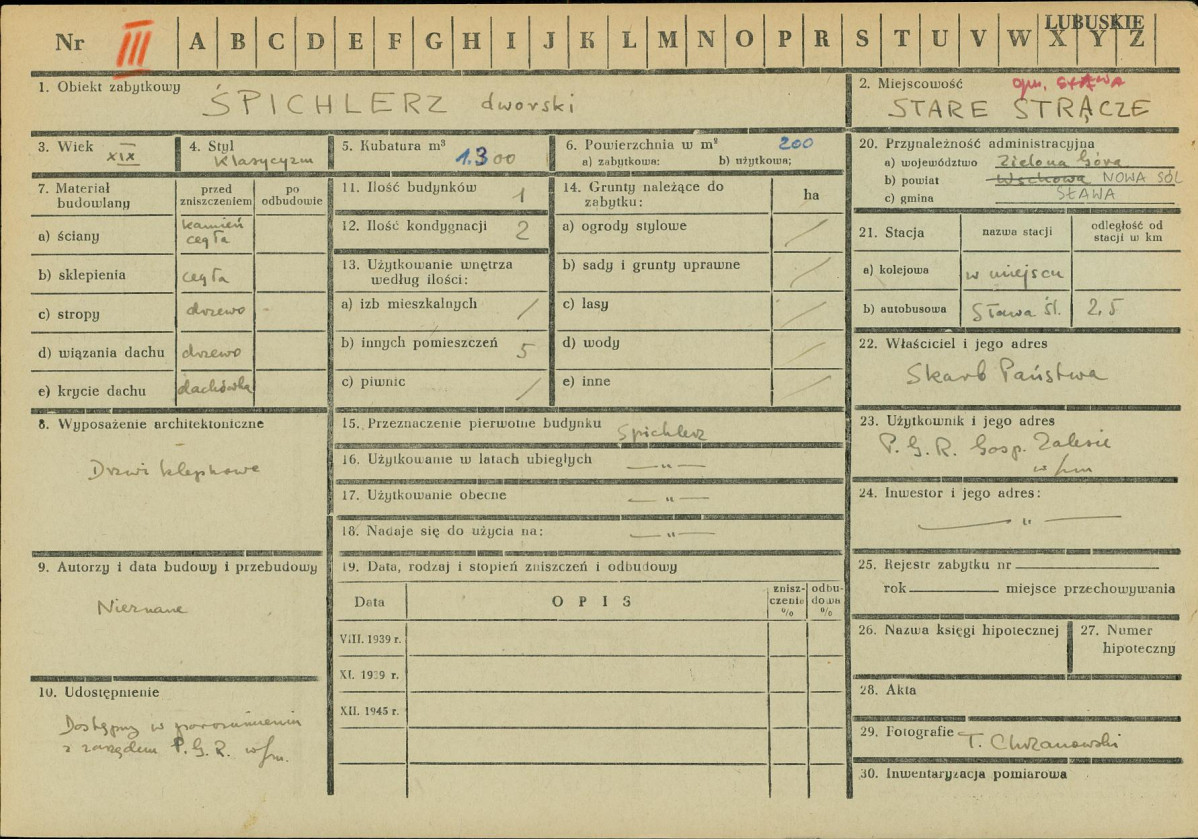 LUBUSKIE
Nr III A B C D E F G H I J K L M N O P R S T U V W X Y Z
1. Obiekt zabytkowy
ŚPICHLERZ dworski
2. Miejscowość gm. SŁAWA
STARE STRĄCZE
3. Wiek XIX
4. Styl Klasycyzm
5. Kubatura m³ 1.300
6. Powierzchnia w m² 200
a) zabytkowa: b) użytkowa;
7. Materiał budowlany
przed zniszczeniem
po odbudowie
a) ściany kamień cegła
b) sklepienia cegła
c) stropy drzewo -
d) wiązania dachu drzewo
e) krycie dachu dachówka
8. Wyposażenie architektoniczne
Drzwi klepkowe
9. Autorzy i data budowy i przebudowy
Nieznane
10. Udostępnienie
Dostępny w porozumieniu
z zarządem P.G.R. w/m.
11. Ilość budynków 1
12. Ilość kondygnacji 2
13. Użytkowanie wnętrza
według ilości:
a) izb mieszkalnych /
b) innych pomieszczeń 5
c) piwnic /
14. Grunty należące do
zabytku:
ha
a) ogrody stylowe /
b) sady i grunty uprawne /
c) lasy /
d) wody /
e) inne /
15. Przeznaczenie pierwotne budynku Spichlerz
16. Użytkowanie w latach ubiegłych — „ —
17. Użytkowanie obecne — „ —
18. Nadaje się do użycia na: — „ —
19. Data, rodzaj i stopień zniszczeń i odbudowy
Data
OPIS
znisz-
czenie
%
odbu-
dowa
%
VIII. 1939 r.
XI. 1939 r.
XII. 1945 r.
20. Przynależność administracyjna
a) województwo Zielona Góra
b) powiat Wschowa NOWA SÓL
c) gmina SŁAWA
21. Stacja
nazwa stacji
odległość od
stacji w km
a) kolejowa w miejscu
b) autobusowa Sława Śl. 2,5
22. Właściciel i jego adres
Skarb Państwa
23. Użytkownik i jego adres
P.G.R. Gosp. Zalesie
w/m
24. Inwestor i jego adres:
— „ —
25. Rejestr zabytku nr
rok miejsce przechowywania
26. Nazwa księgi hipotecznej
27. Numer
hipoteczny
28. Akta
29. Fotografie T. Chrzanowski
30. Inwentaryzacja pomiarowa